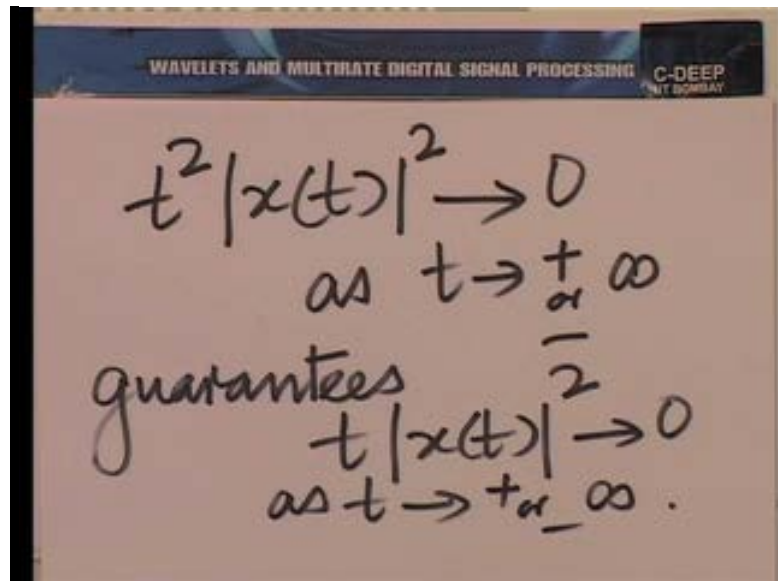 WAVELETS AND MULTIRATE DIGITAL SIGNAL PROCESSING
C-DEEP
IIT BOMBAY
t²|x(t)|² → 0
as t → + or − ∞
guarantees
t|x(t)|² → 0
as t → + or − ∞ .